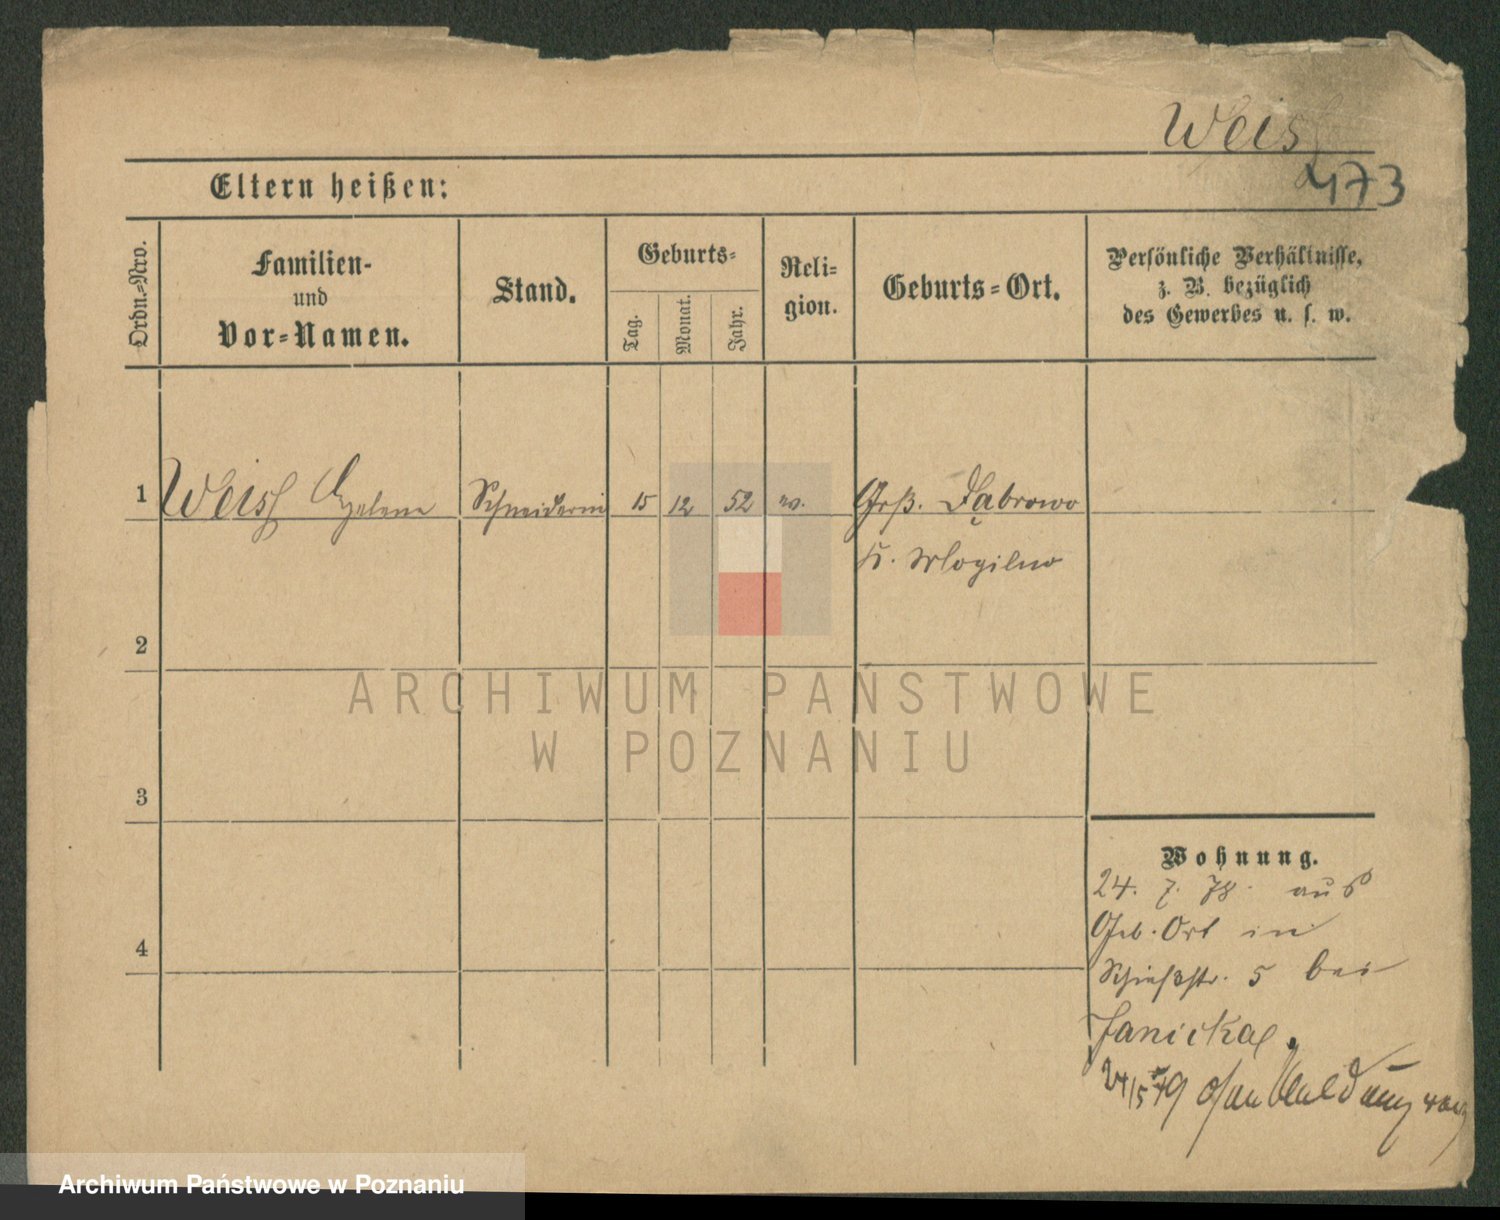 Weiss
473
Eltern heißen:
Ordn.-Nro.
Familien-
und
Vor-Namen.
Stand.
Geburts-
Tag.
Monat.
Jahr.
Reli-
gion.
Geburts-Ort.
Persönliche Verhältnisse,
z. B. bezüglich
des Gewerbes u. s. w.
1 Weiss Helene Schneiderin 15 12 52 ev. Grß. Dąbrowo
K. Mogilno
2
3
4
Wohnung.
24. 7. 78. aus
Geb. Ort in
Schießstr. 5 bei
Janickal.
24/5 79 ohne Meldung
ARCHIWUM PAŃSTWOWE
W POZNANIU
Archiwum Państwowe w Poznaniu